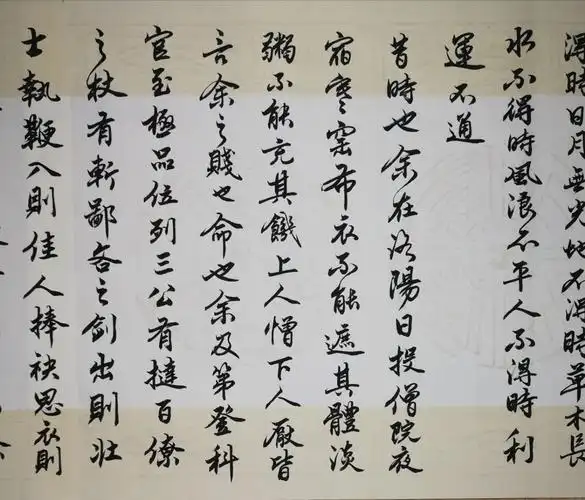 淂時日月無光地不淂時草木長
水不得時風浪不平人不淂時利
運不通
昔時也余在洛陽日投僧院夜
宿寒窑布衣不能遮其體淡
粥不能充其饑上人憎下人厭皆
言余之賤也命也余及第登科
官至極品位列三公有撻百僚
之杖有斬鄙吝之劍出則壯
士執鞭入則佳人捧袂思衣則